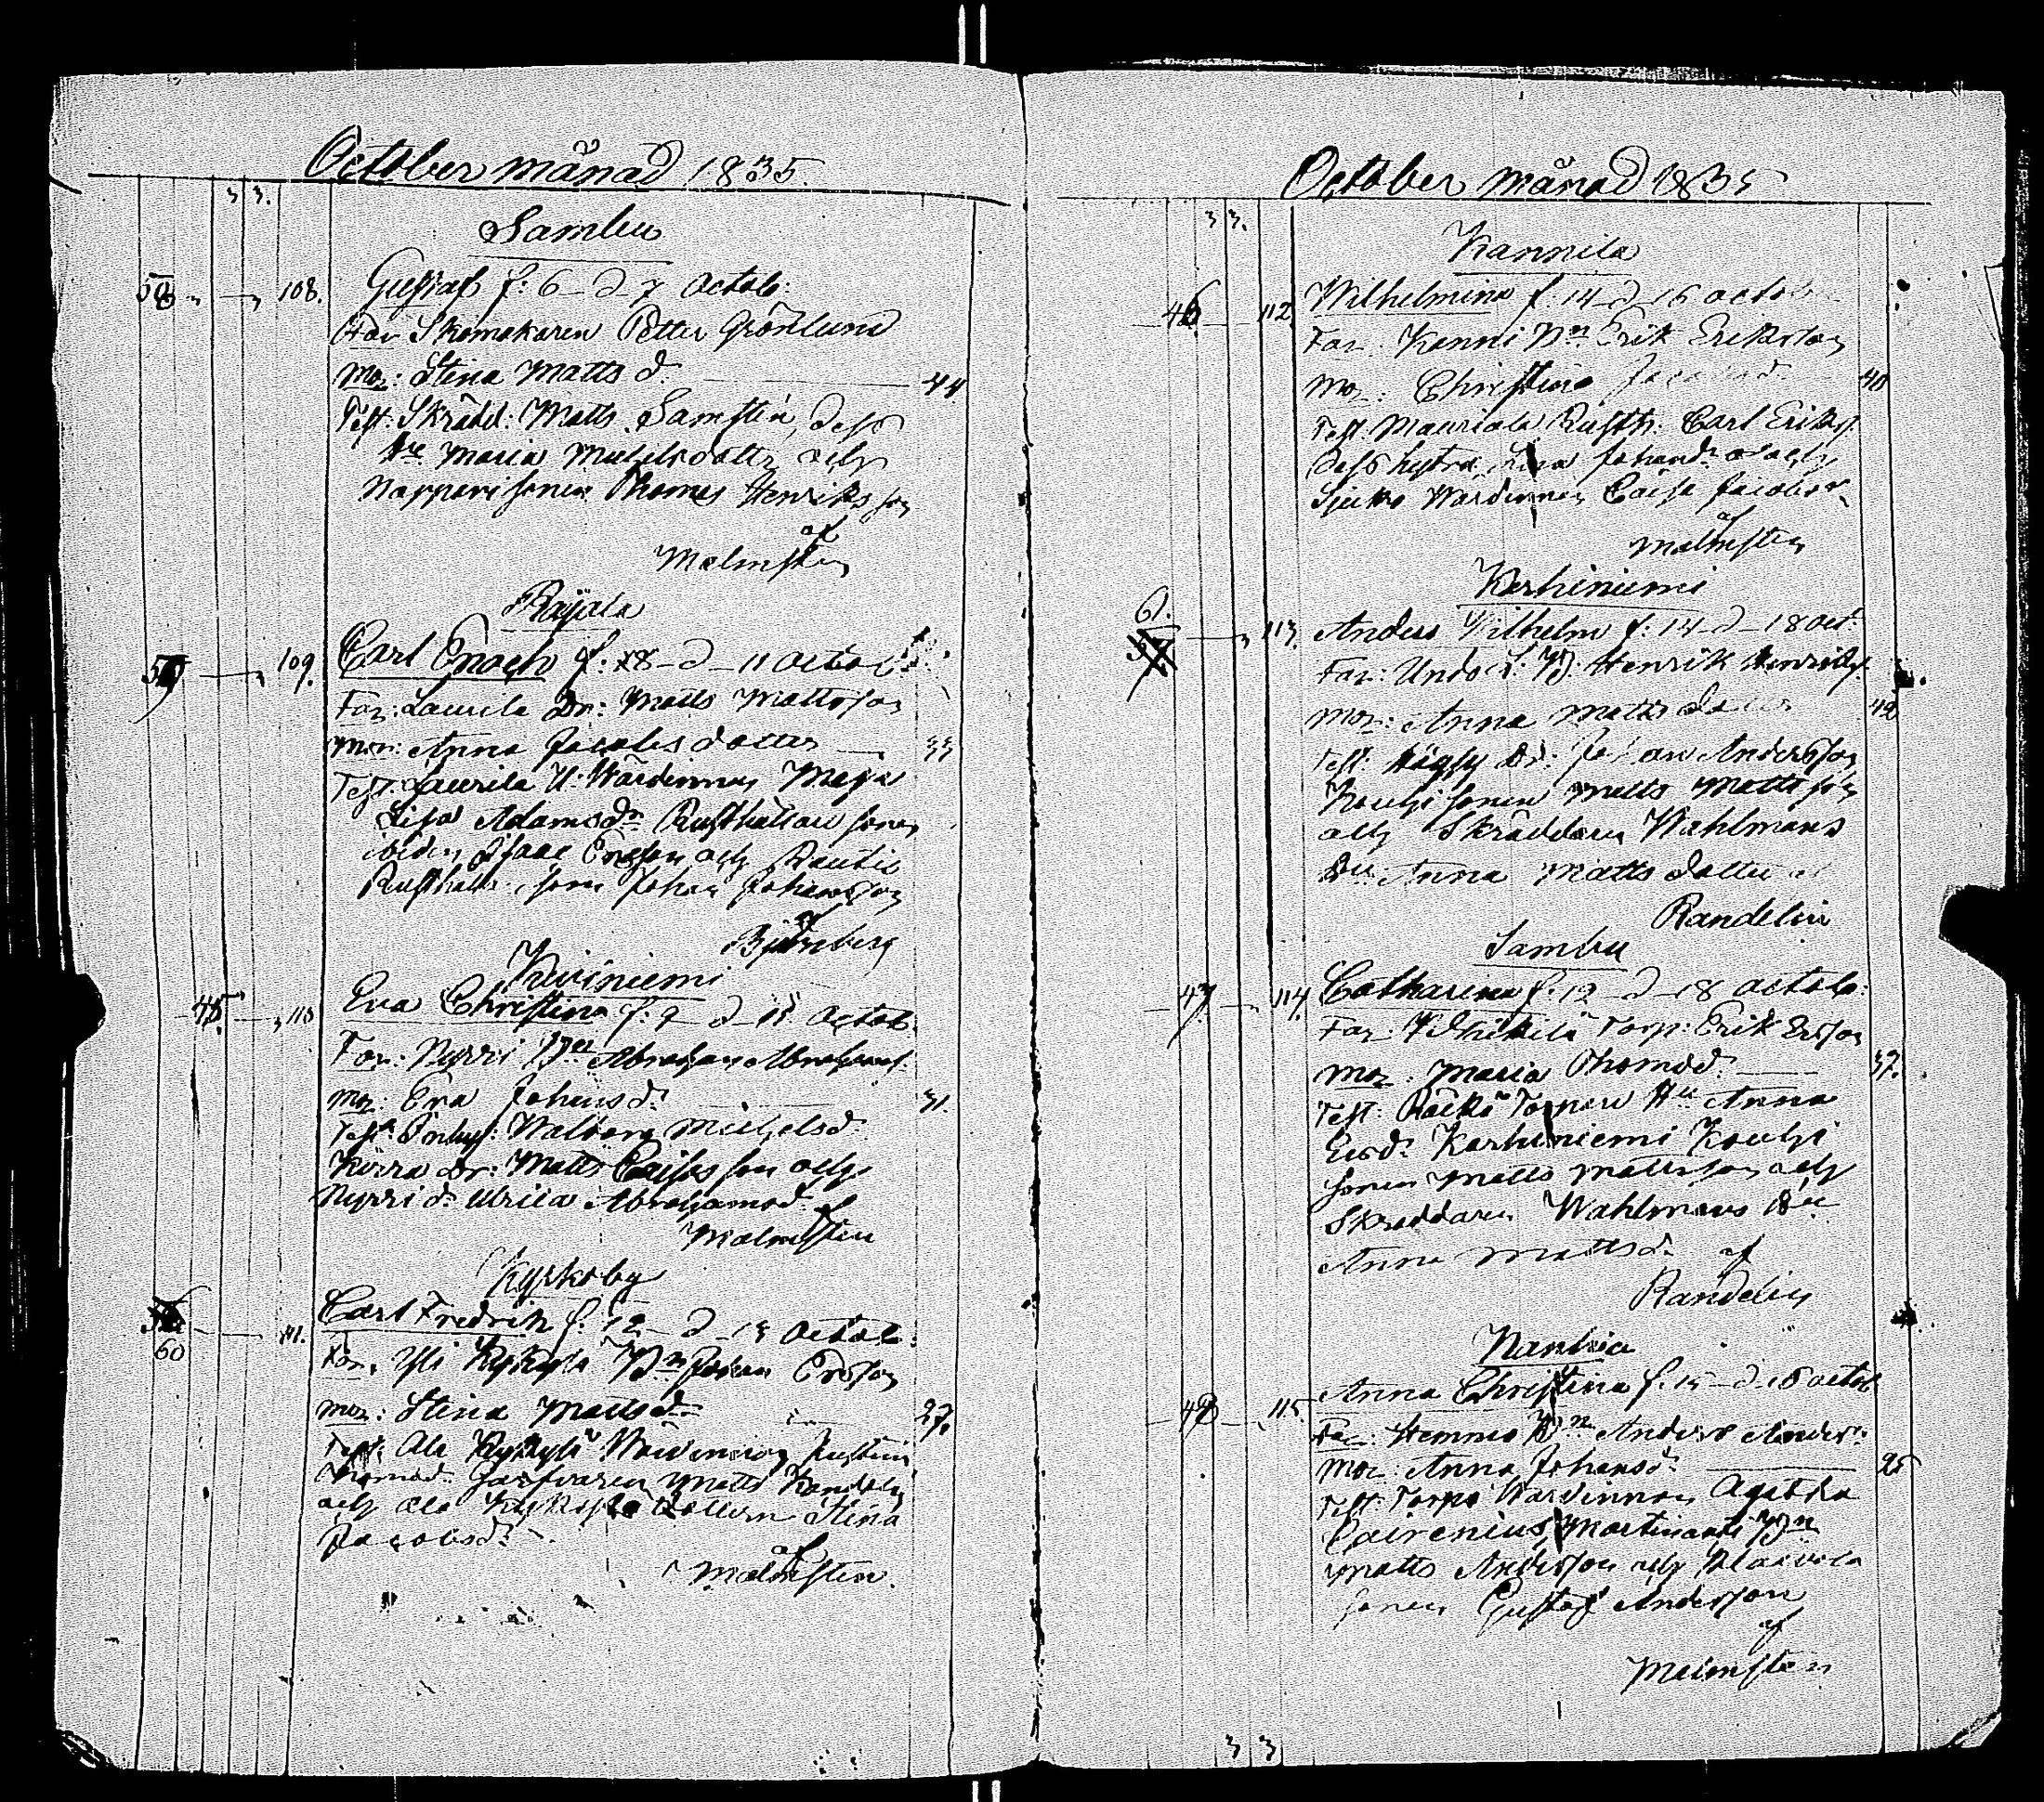 October månad 1835.
3 3.
Sambu
58 108. Gustaf f: 6 d 7 Octob:
Far Skomakaren Petter Grönlund
Mor: Stina Matts d. 44
Test: Skrädd: Matts Samstén, dess
Hu Maria Michelsdotter och
Napparis sonen Thomas Henriksson
af
Malmsten
Raijala
59 109. Carl Enoch f: 8 d 11 Octob:
Far: Laurila Dr: Matts Mattsson
Mor: Anna Jacobsdotter 33
Test: Laurila H: Wärdinnan Maja
Lisa Adamsdr Rusthållare sonen
Isaac Ersson och
Rusth: son Johan Johansson
af
Björnberg
Kiviniemi
45 110 Eva Christina f: 9 d 11 Octob:
Far: Nyrri Bn Abraham Abrahams:
Mor: Eva Johansd: 31.
Test: Inhys: Walborg Michelsd:
Dr: Matts son och
Nyrri dr Ulrica Abrahamsd:
af
Malmsten
Kyrkoby
60 111. Carl Fredrik f: 12 d 13 Octob:
Far: Yli Kykylä Bn Johan Ersson
Mor: Stina Mattsdr 27.
Test: Ala Kykylä Wärdinnan Justina
Thomasd: Garfvaren Matts Randelin
och Ala Kykylä dottern Stina
Jacobsdr
af
Malmsten.
October månad 1835
3 3.
Kannila
46 112. Wilhelmina f: 14 d 16 Octob
Far: Kanni Bn Erik Eriksson
Mor: Christina 40
Test: Mauriala Rusth: Carl Eriks:
Dess hustru Lisa Johansdr och
Wärdinnan Caisa Jacobsdr
af
Malmsten
Karhiniemi
61. 113. Anders Wilhelm f: 14 d 18 oct:
Far: Undo L: Bn Henrik Henriks:
Mor: Anna Mattsdotter 42
Test: Dr: Johan Andersson
Kouhi sonen Matts Mattsson
och Skräddaren Wahlmans
Hu Anna Mattsdotter af
Randelin
Sambu
47 114. Catharina f: 12 d 18 Octob:
Far: Torp: Erik Ersson
Mor: Maria Thomsd: 37.
Test: Torpare Hu Anna
Ersdr Karhiniemi Kouhi
sonen Matts Mattsson och
Skräddaren Wahlmans Hu
Anna Mattsdr af
Randelin
Nanhia
48 115. Anna Christina f: 15 d 16 Octob
Far: Hemmo Bn Anders Anders:
Mor: Anna Johansd: 25
Test: Torpa Wärdinnan Agatha
Cairenius, Martinanti Bn
Matts Andersson och
sonen Gustaf Andersson
af
Malmsten
3 3